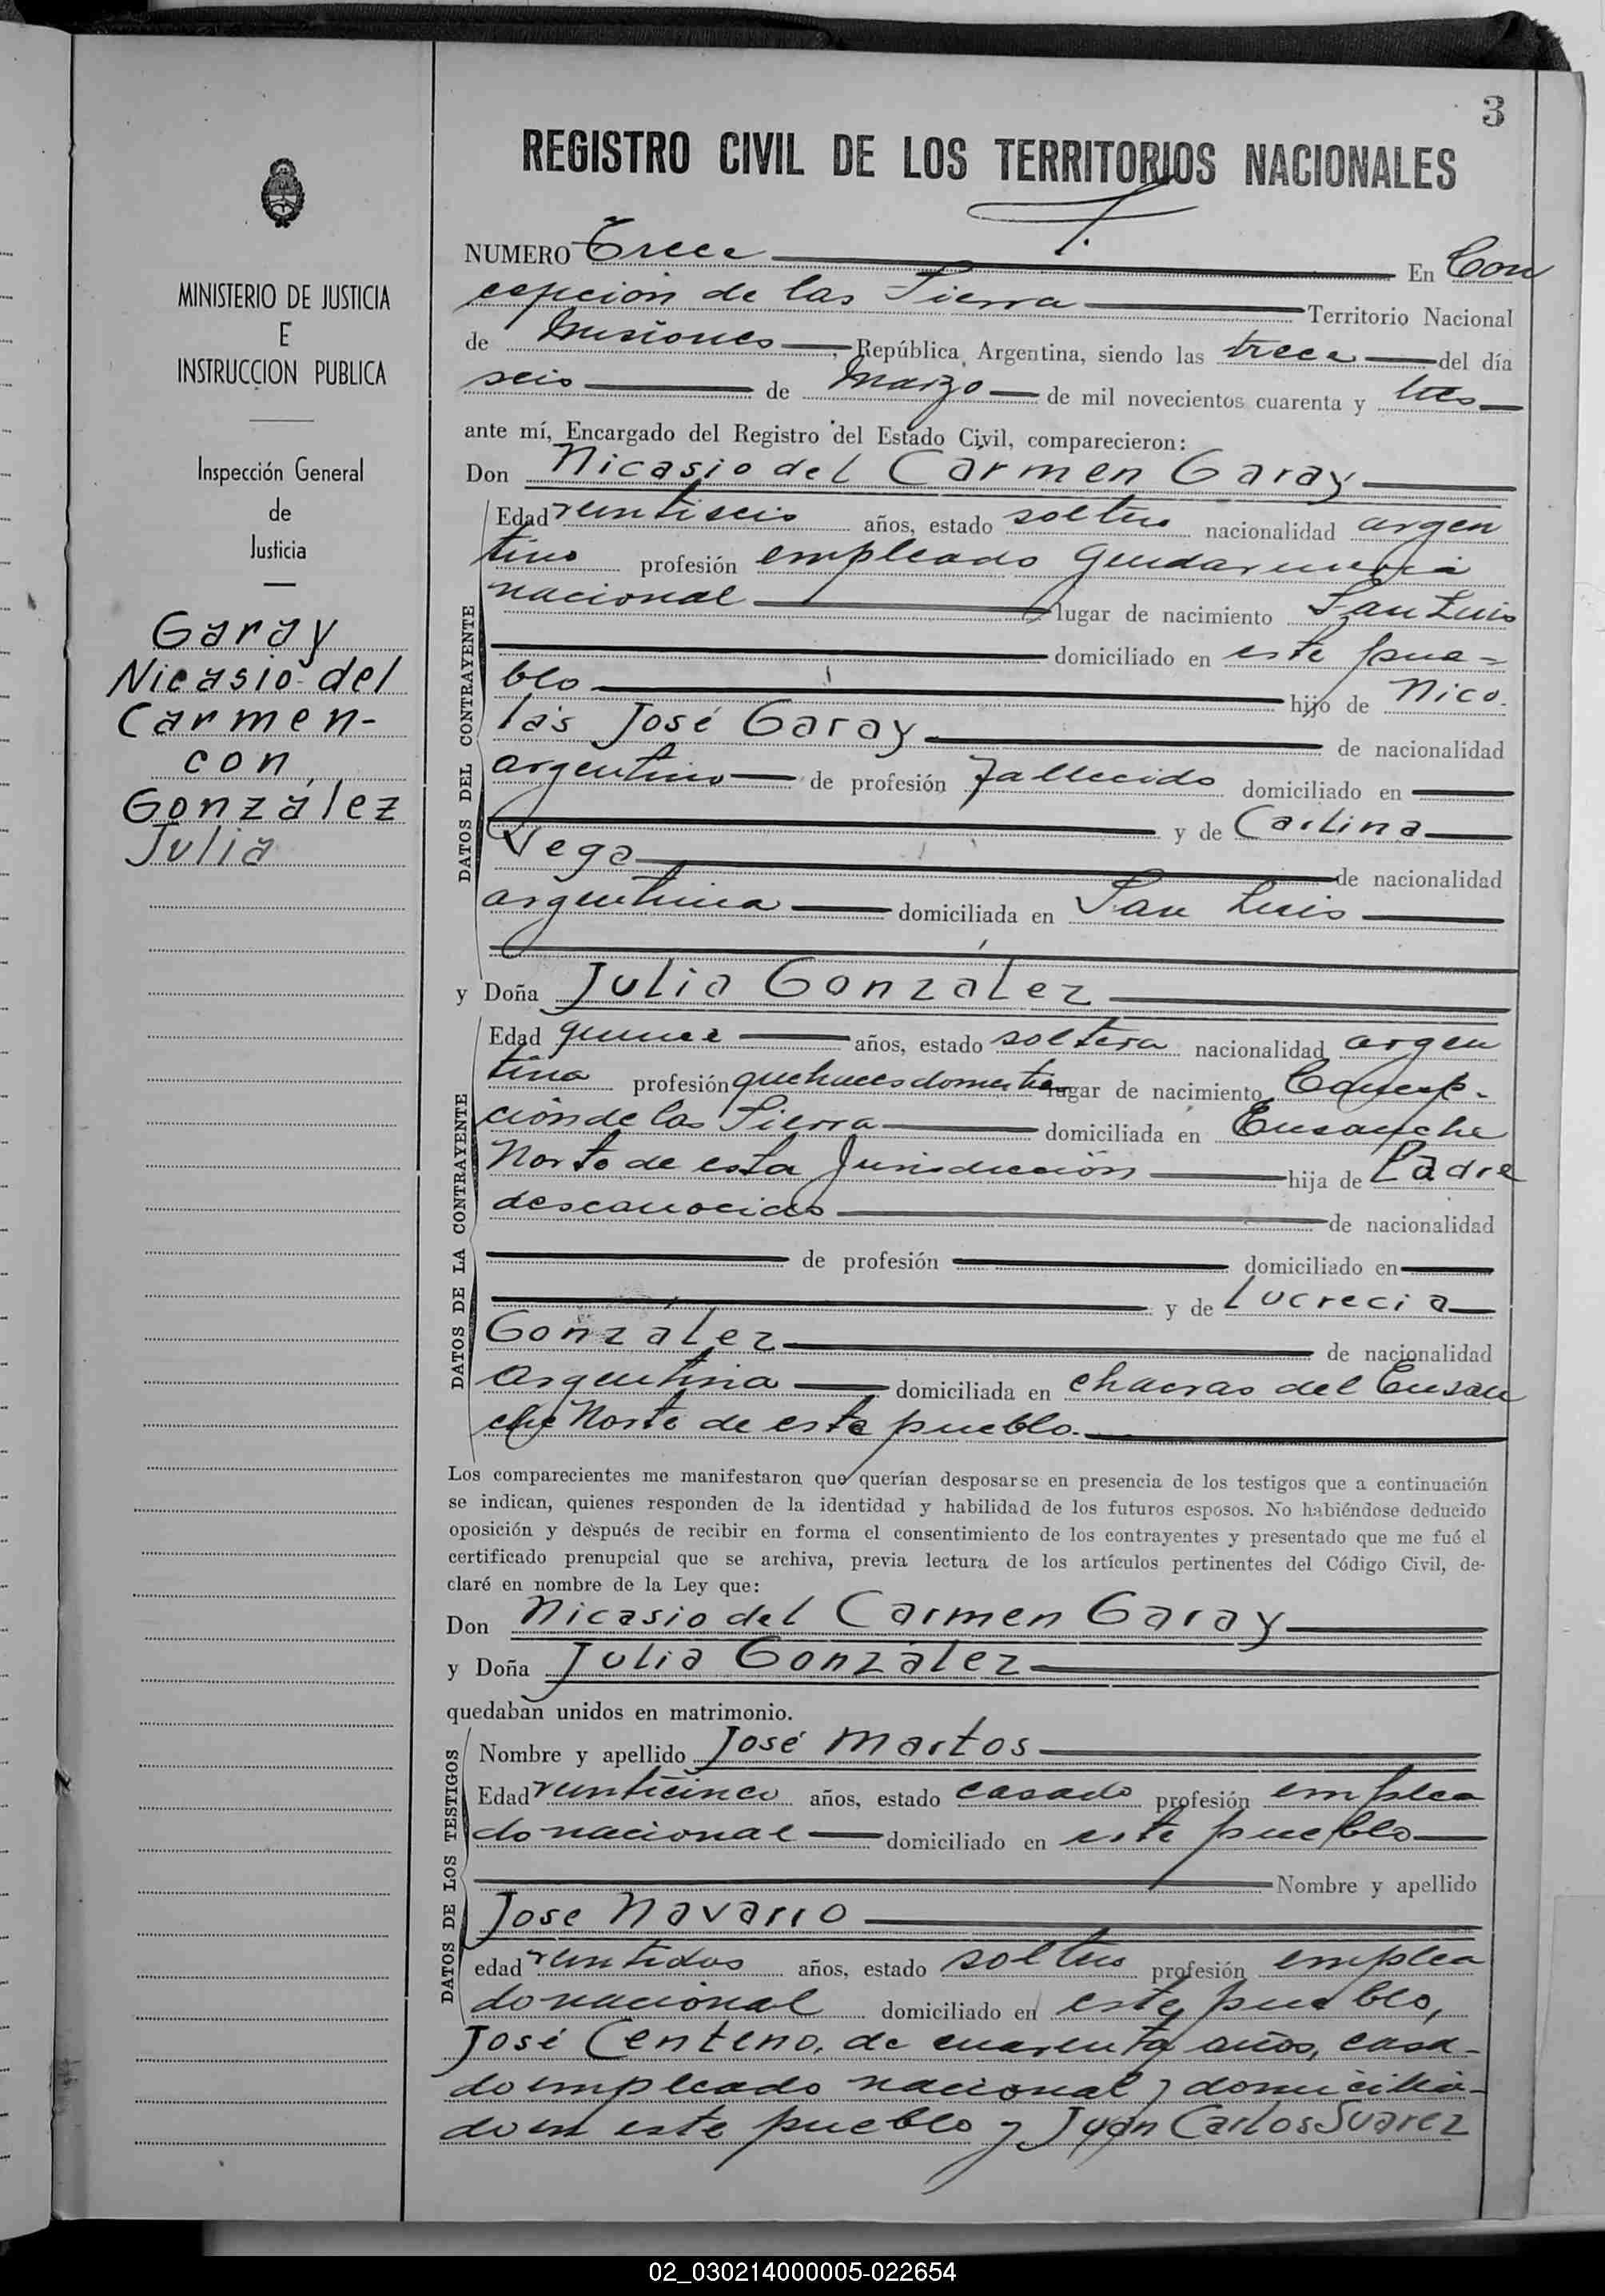 3
REGISTRO CIVIL DE LOS TERRITORIOS NACIONALES
MINISTERIO DE JUSTICIA
E
INSTRUCCION PUBLICA
Inspección General
de
Justicia
Garay
Nicasio del
Carmen-
con
González
Julia
NUMERO Trece En Con
cepción de las Sierra Territorio Nacional
de Misiones, República Argentina, siendo las trece del día
seis de Marzo de mil novecientos cuarenta y tres
ante mí, Encargado del Registro del Estado Civil, comparecieron:
Don Nicasio del Carmen Garay
DATOS DEL CONTRAYENTE
Edad veintiseis años, estado soltero nacionalidad argen
tino profesión empleado gendarmeria
nacional lugar de nacimiento San Luis
domiciliado en este pue=
blo hijo de Nico-
lás José Garay de nacionalidad
argentino de profesión fallecido domiciliado en
y de Carlina
Vega de nacionalidad
argentina domiciliada en San Luis
y Doña Julia González
DATOS DE LA CONTRAYENTE
Edad quince años, estado soltera nacionalidad argen
tina profesión quehaceres domesticos lugar de nacimiento Concep-
ción de las Sierra domiciliada en Ensanche
Norte de esta Jurisdicción hija de Padre
desconocido de nacionalidad
de profesión domiciliado en
y de Lucrecia
González de nacionalidad
Argentina domiciliada en chacras del Ensan
che Norte de este pueblo.
Los comparecientes me manifestaron que querían desposarse en presencia de los testigos que a continuación
se indican, quienes responden de la identidad y habilidad de los futuros esposos. No habiéndose deducido
oposición y después de recibir en forma el consentimiento de los contrayentes y presentado que me fué el
certificado prenupcial que se archiva, previa lectura de los artículos pertinentes del Código Civil, de-
claré en nombre de la Ley que:
Don Nicasio del Carmen Garay
y Doña Julia González
quedaban unidos en matrimonio.
DATOS DE LOS TESTIGOS
Nombre y apellido José Martos
Edad veinticinco años, estado casado profesión emplea
do nacional domiciliado en este pueblo
Nombre y apellido
Jose Navarro
edad veintidos años, estado soltero profesión emplea
do nacional domiciliado en este pueblo,
José Centeno, de cuarenta años, casa-
do empleado nacional y domicilia-
do en este pueblo y Juan Carlos Suarez
02_030214000005-022654